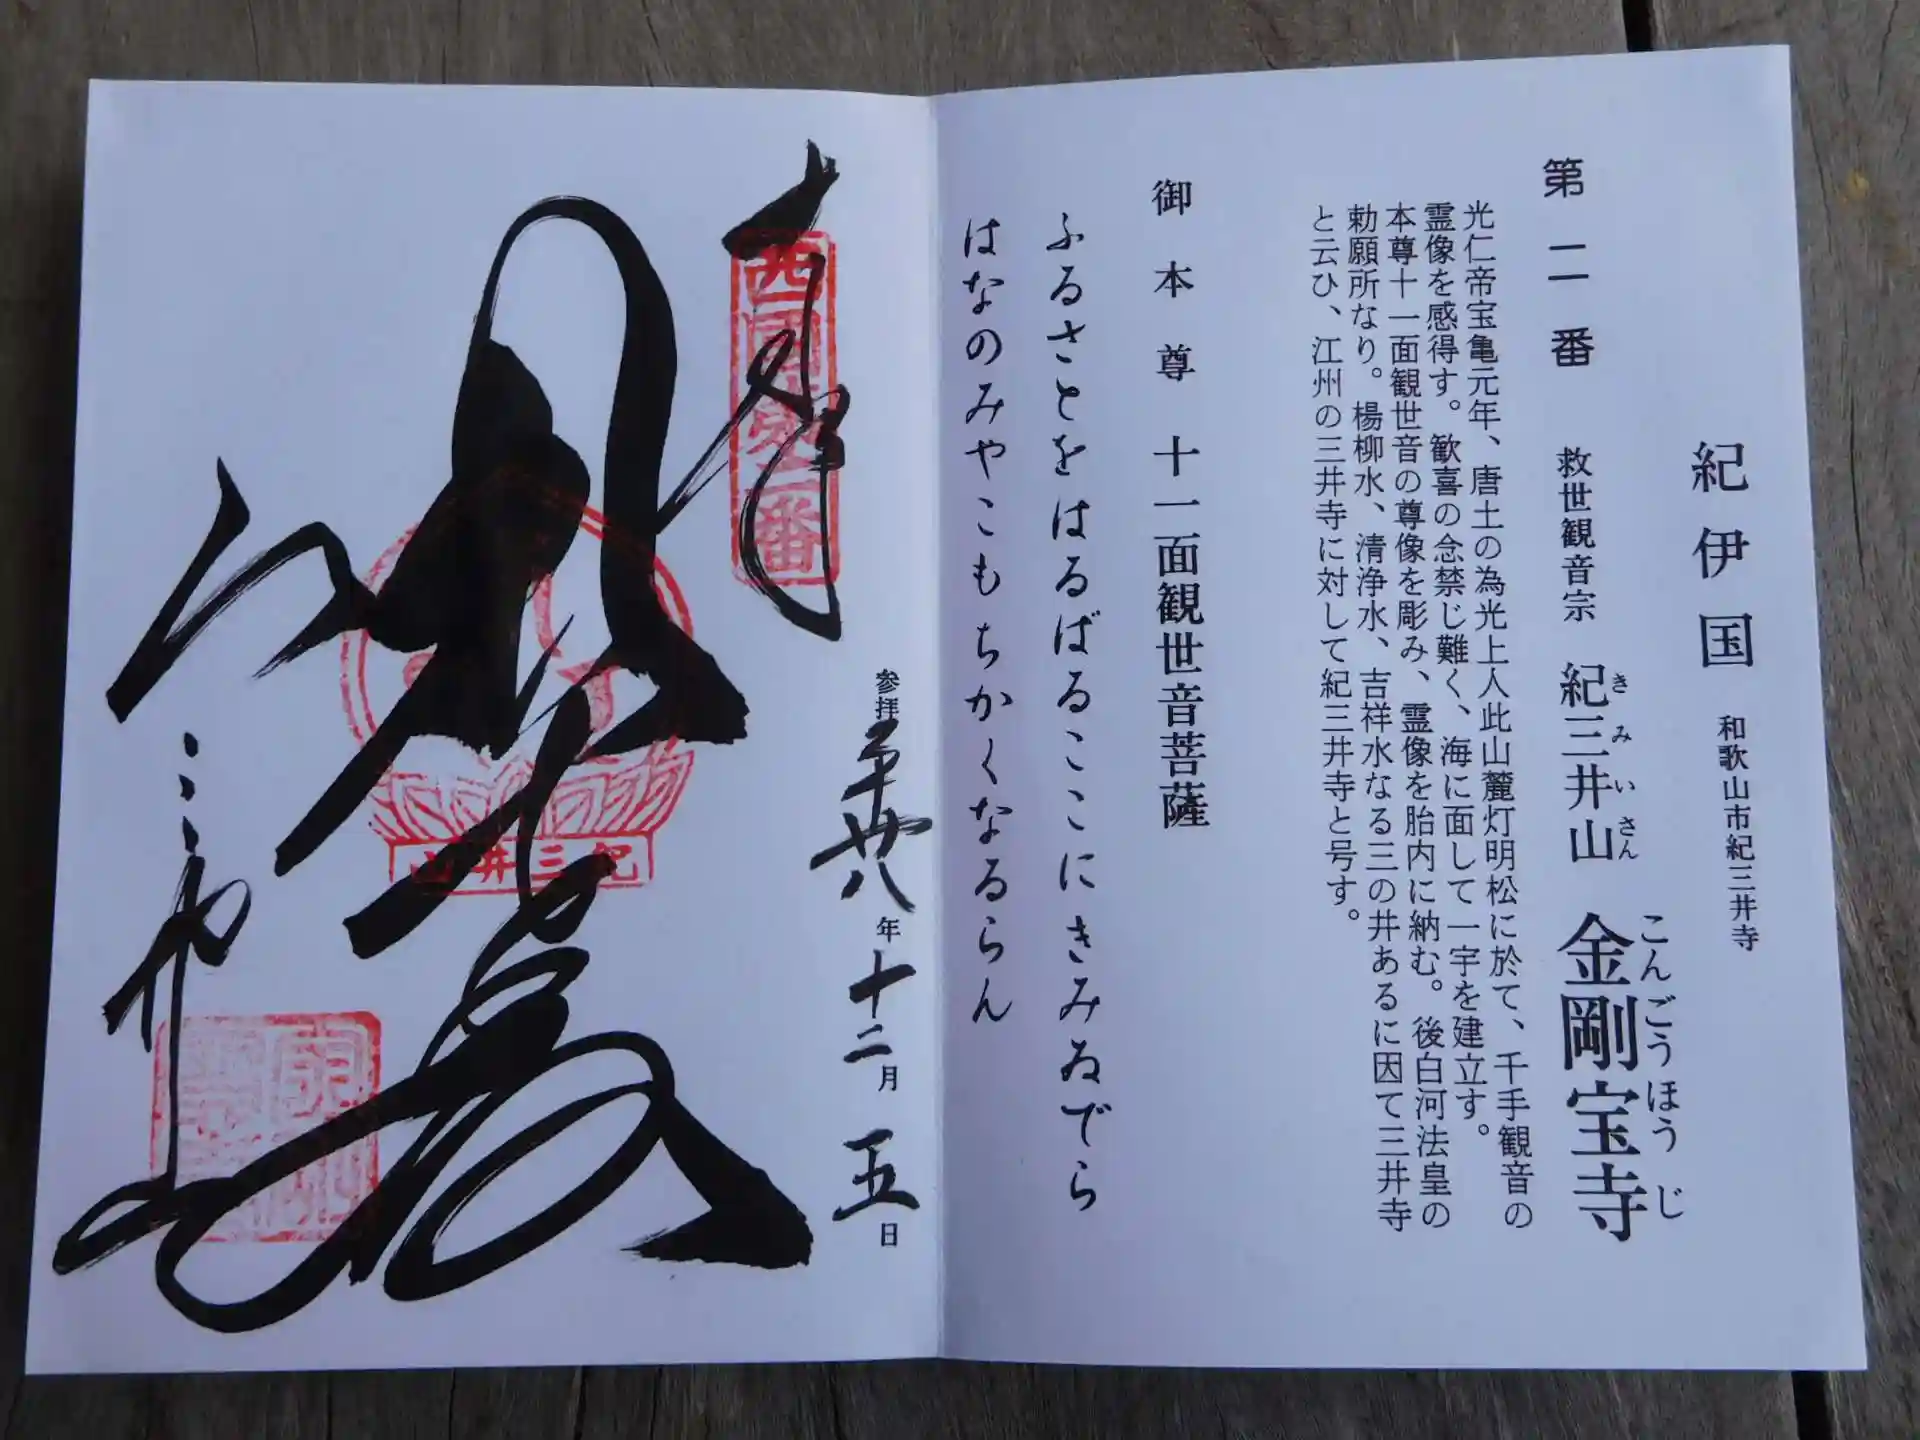 紀伊国 和歌山市紀三井寺
第二番 救世観音宗 紀三井山 金剛宝寺
きみいさん こんごうほうじ
光仁帝宝亀元年、唐土の為光上人此山麓灯明松に於て、千手観音の
霊像を感得す。歓喜の念禁じ難く、海に面して一宇を建立す。
本尊十一面観世音の尊像を彫み、霊像を胎内に納む。後白河法皇の
勅願所なり。楊柳水、清浄水、吉祥水なる三の井あるに因て三井寺
と云ひ、江州の三井寺に対して紀三井寺と号す。
御本尊 十一面観世音菩薩
ふるさとをはるばるここにきみゐでら
はなのみやこもちかくなるらん
参拝 平廿八年十二月五日
西国第二番
紀三井山